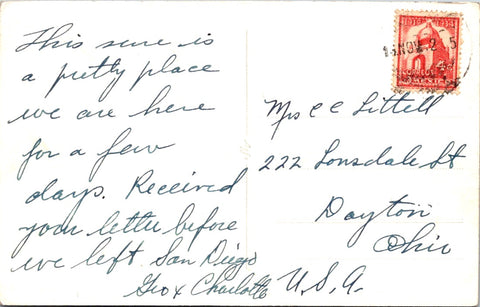 This sure is
a pretty place
we are here
for a few
days. Received
your letter before
we left San Diego
Geo & Charlotte
NOV 2 5
4¢
CORREOS
MEXICO
Mrs C C Littell
222 Lonsdale St
Dayton
Ohio
U.S.A.